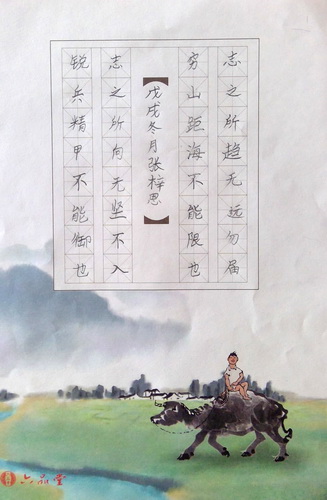 志之所趋无远勿届
穷山距海不能限也
【戊戌冬月张梓恩】
志之所向无坚不入
锐兵精甲不能御也
六品堂